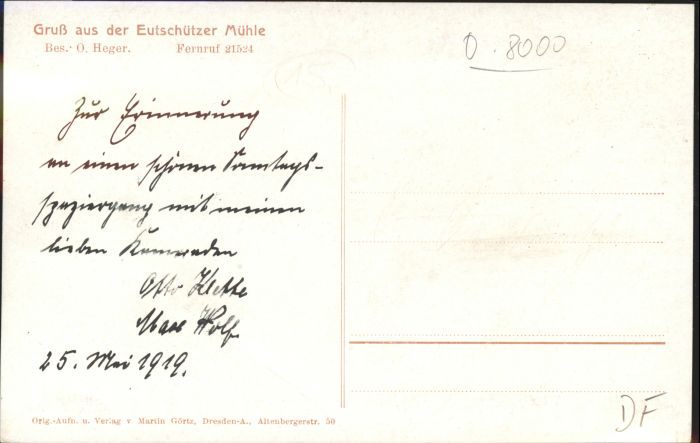 Gruß aus der Eutschützer Mühle
Bes.: O. Heger. Fernruf 21524
D. 8000
15
Zur Erinnerung
an einen schönen Sonntags-
spaziergang mit meinen
lieben Kameraden
Otto Klette
Max Wolf
25. Mai 1919.
Orig.-Aufn. u. Verlag v Martin Görtz, Dresden-A., Altenbergerstr. 50
DF